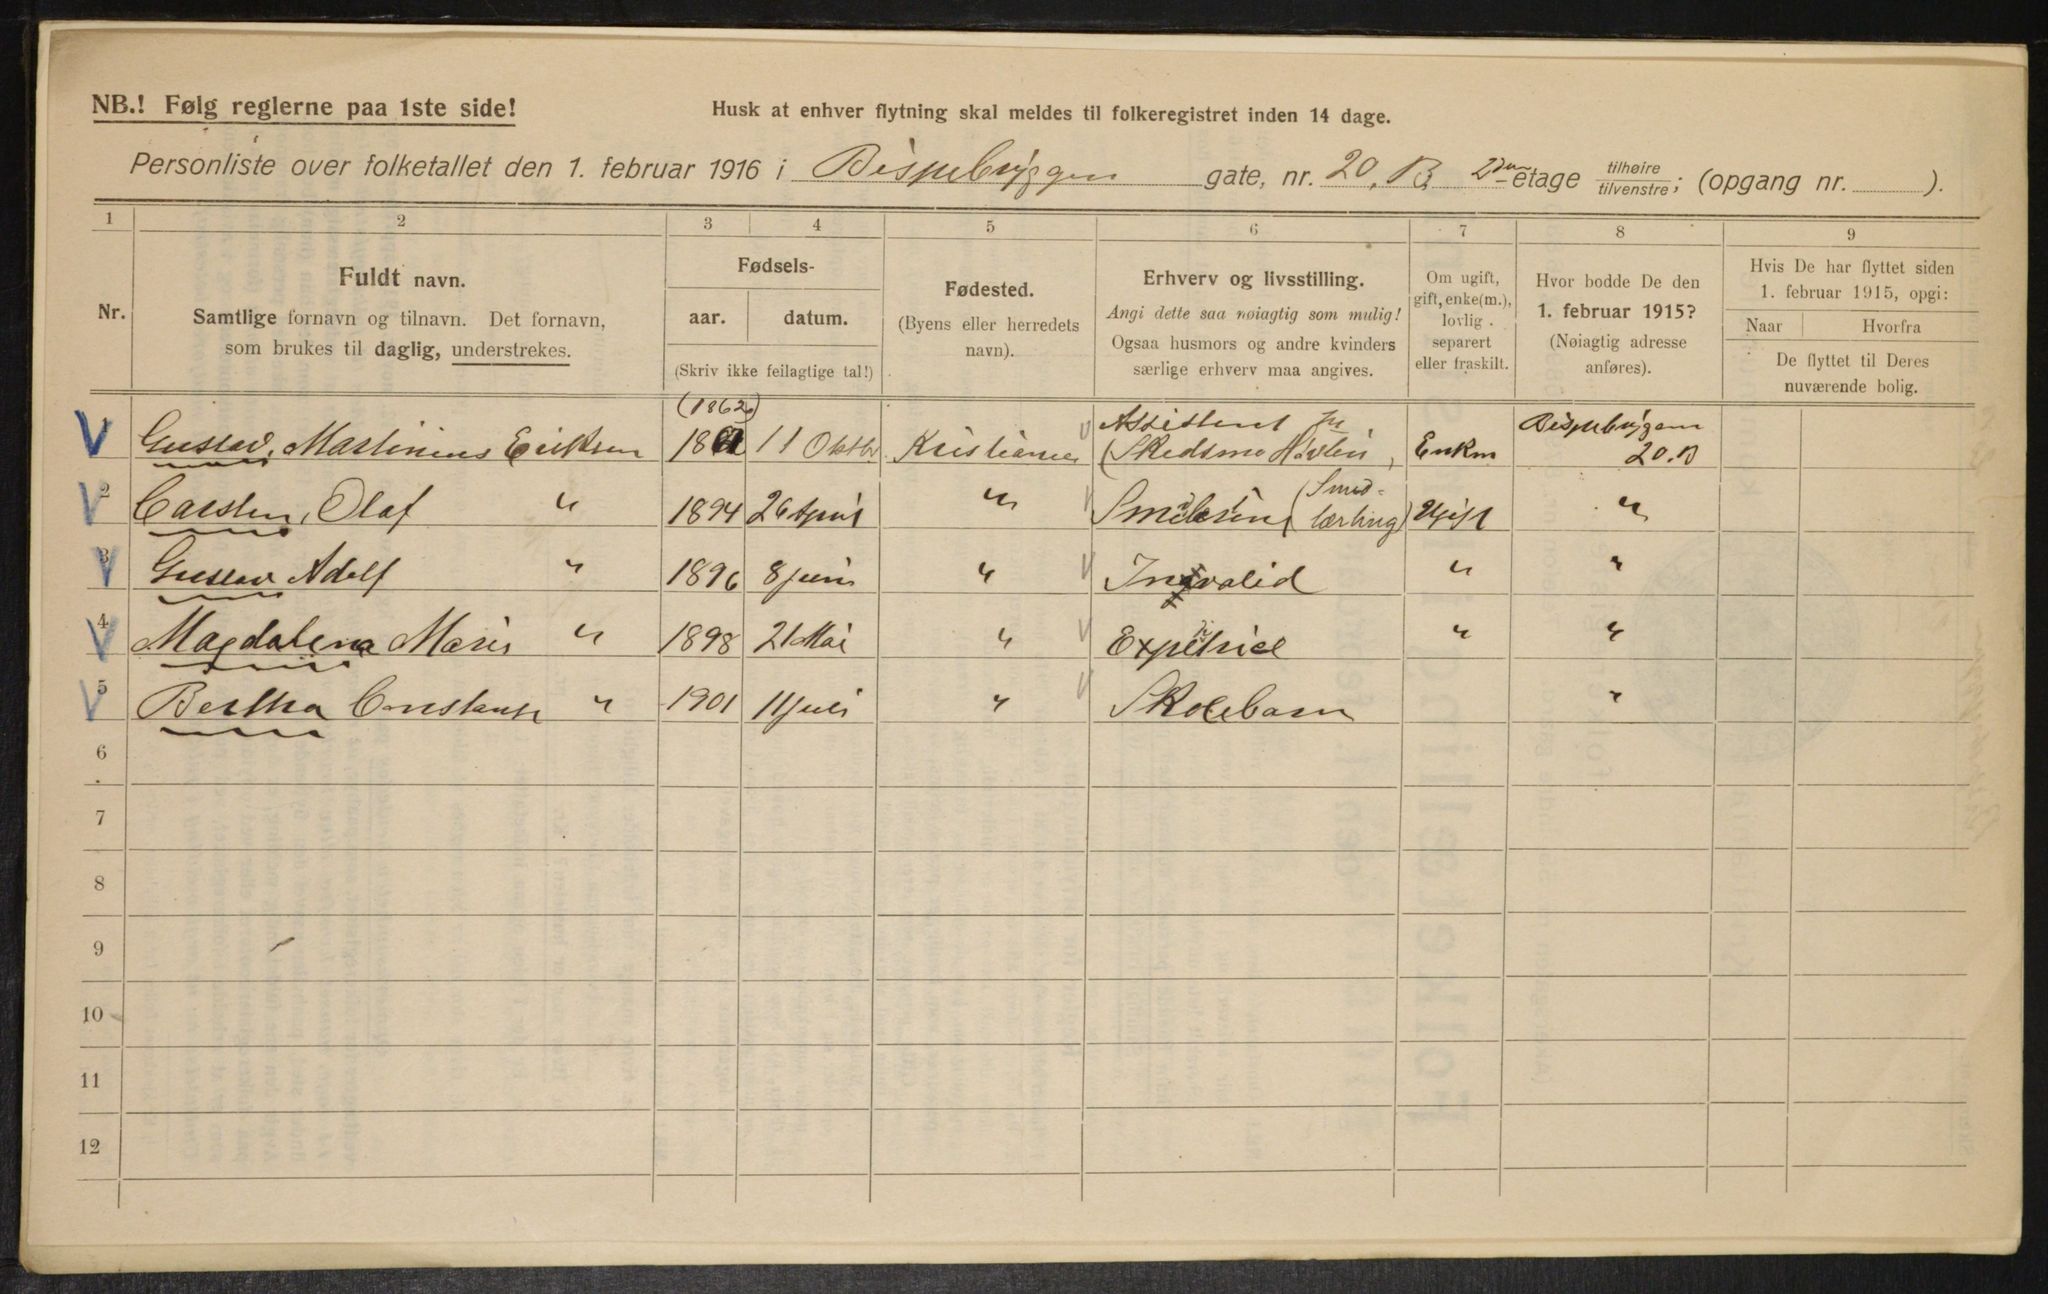 NB.! Følg reglerne paa 1ste side!
Husk at enhver flytning skal meldes til folkeregistret inden 14 dage.
Personliste over folketallet den 1. februar 1916 i Bispebryggen gate, nr. 20. B. 2den etage tilhøire/tilvenstre; (opgang nr. ).
1 2 3 4 5 6 7 8 9
Nr.
Fuldt navn.
Samtlige fornavn og tilnavn. Det fornavn,
som brukes til daglig, understrekes.
Fødsels-
aar. datum.
(Skriv ikke feilagtige tal!)
Fødested.
(Byens eller herredets
navn).
Erhverv og livsstilling.
Angi dette saa nøiagtig som mulig!
Ogsaa husmors og andre kvinders
særlige erhverv maa angives.
Om ugift,
gift, enke(m.),
lovlig
separert
eller fraskilt.
Hvor bodde De den
1. februar 1915?
(Nøiagtig adresse
anføres).
Hvis De har flyttet siden
1. februar 1915, opgi:
Naar Hvorfra
De flyttet til Deres
nuværende bolig.
(1862) Assistent Bispebryggen
1 Gustav, Martinius Eriksen 11 Oktbr Kristiania (Skedsmo Enkm 20.B
2 Carsten, Olaf " 1894 26 April " (Smed-lærling) Ugift "
3 Gustav Adolf " 1896 8 juni " Invalid " "
4 Magdalena Marie " 1898 21 Mai " Expetrice " "
5 Bertha Constanse " 1901 11 juli " Skolebarn "
6
7
8
9
10
11
12